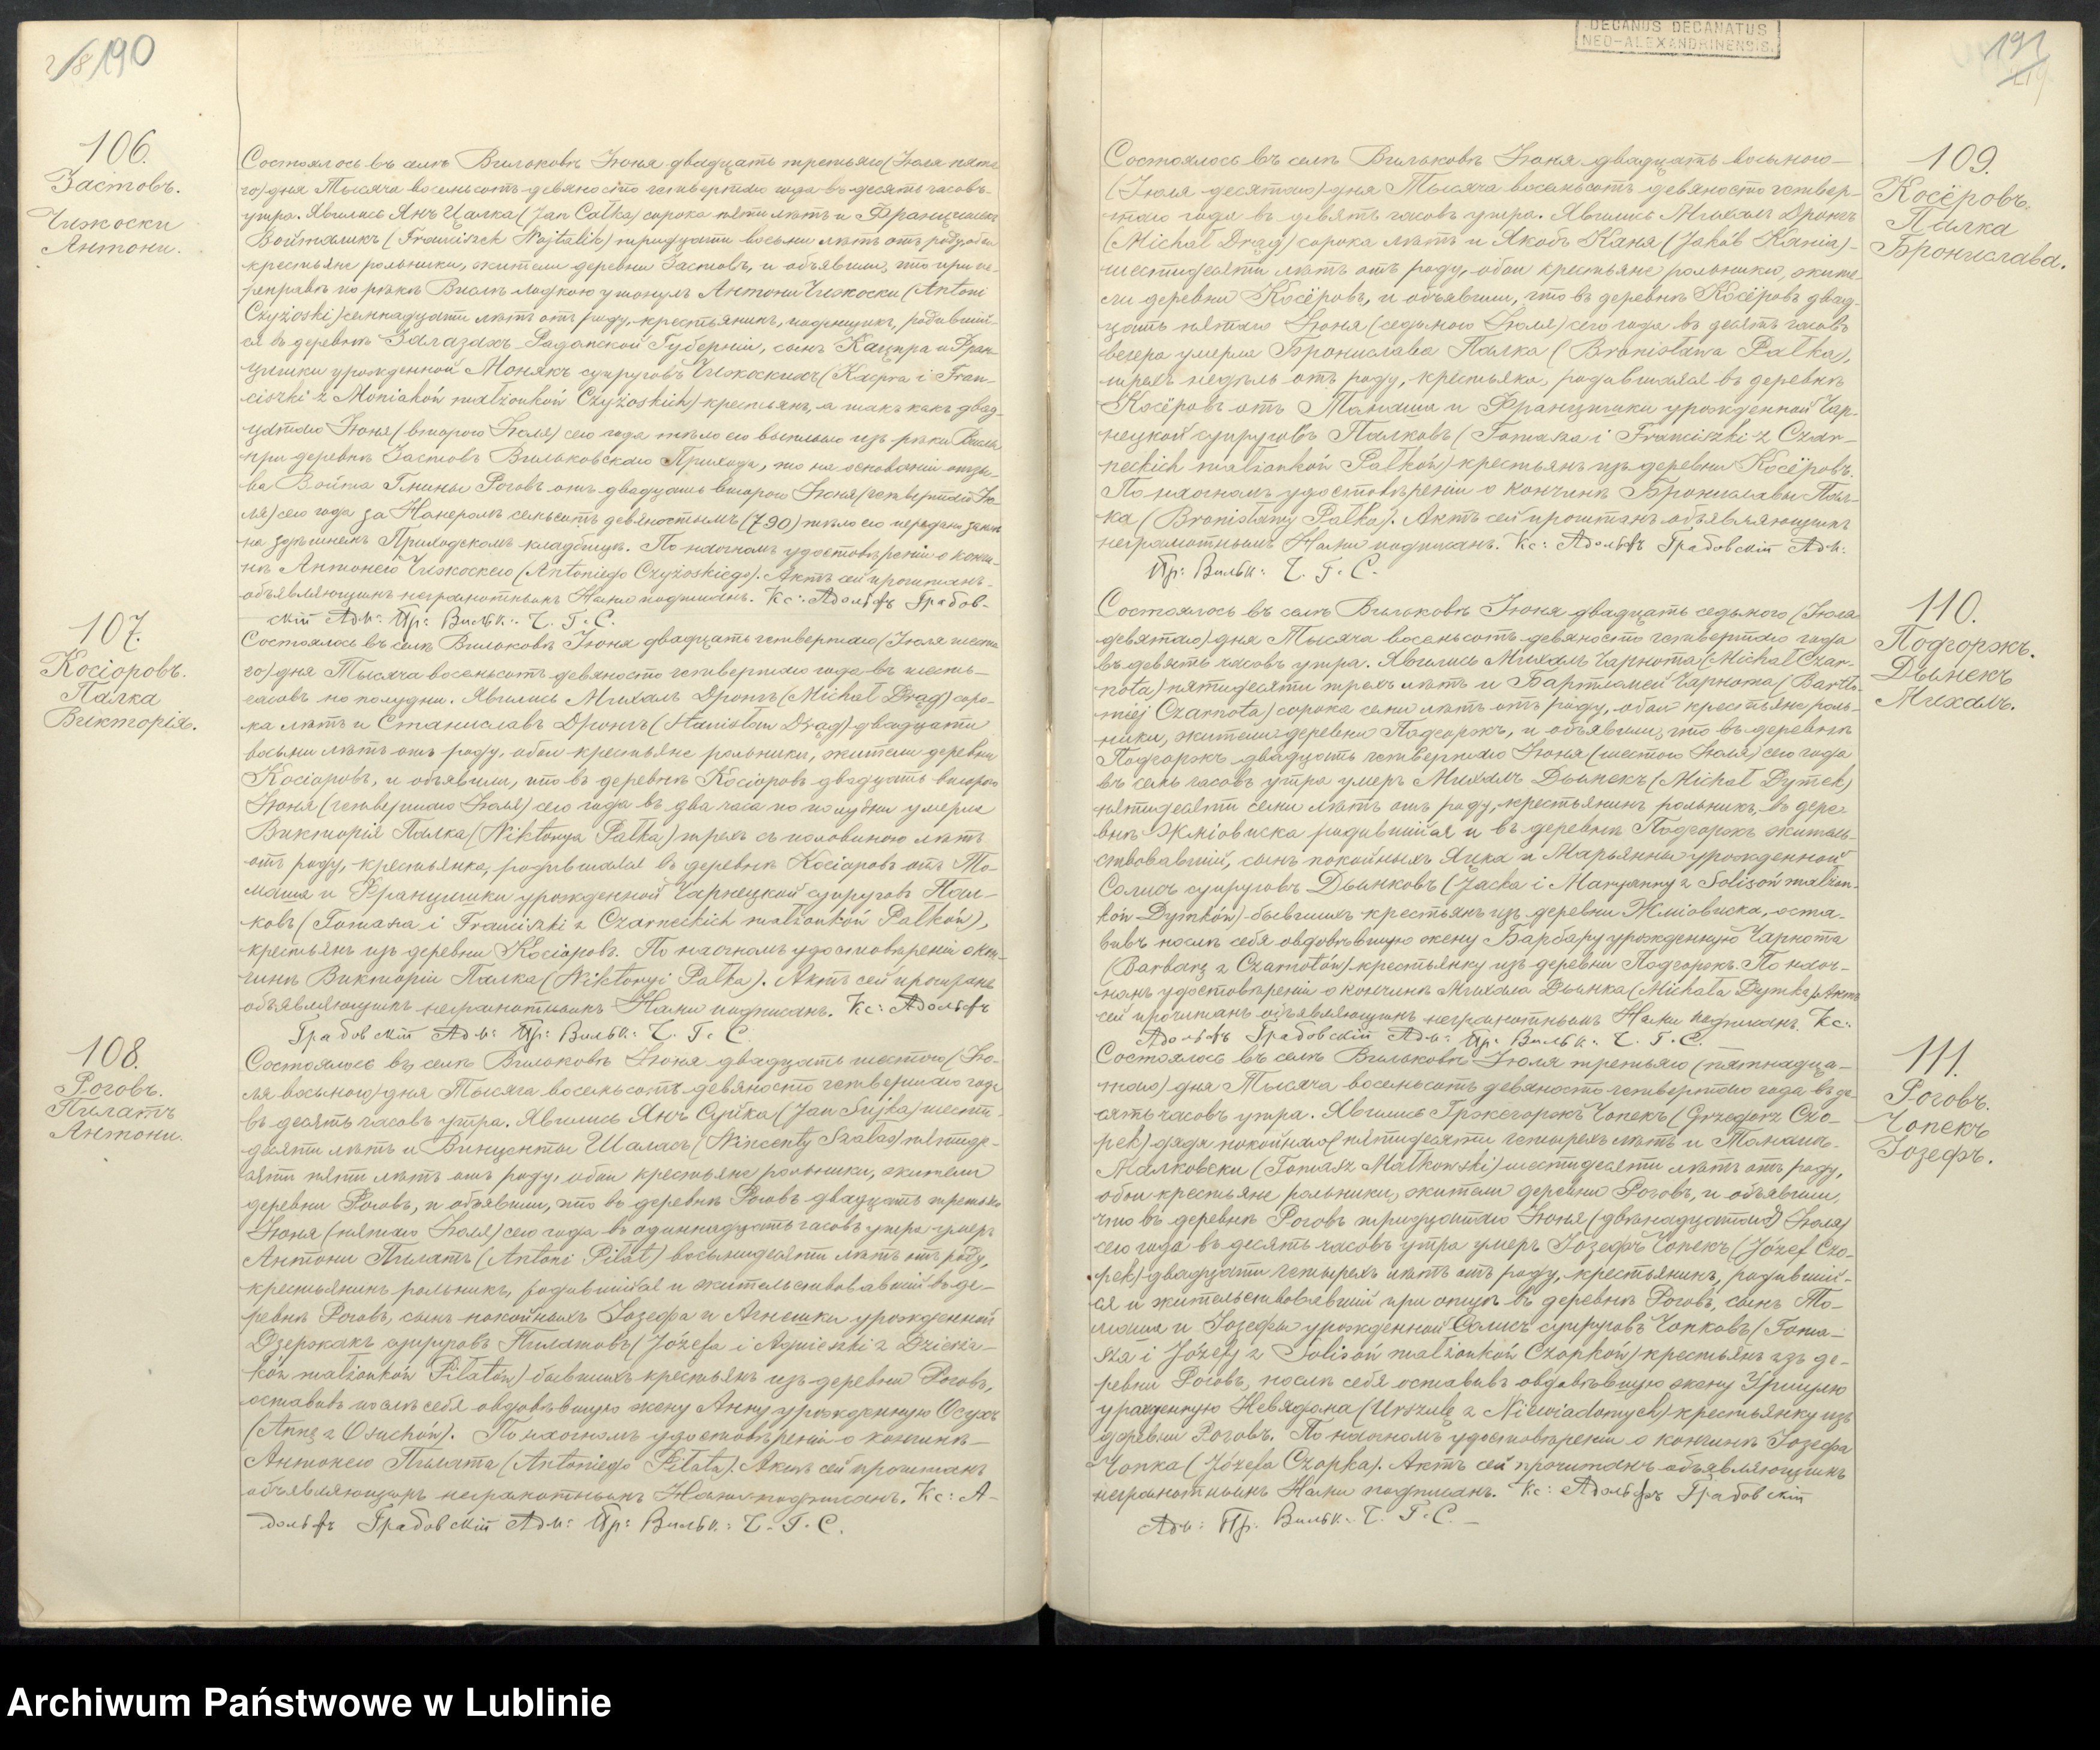 190
106.
Застовъ.
Чижоски
Антони.
Состоялось въ селѣ Вильковѣ Іюня двадцать третьяго (Іюля пята
го) дня Тысяча восемьсотъ девяносто четвертаго года въ десять часовъ
утра. Явились Янъ Цалка (Jan Całka) сорока пяти лѣтъ и Францишекъ
Войталикъ (Franciszek Wojtalik) тридцати восьми лѣтъ отъ роду, оба
крестьяне рольники, жители деревни Застовъ, и объявили, что при пе-
реправѣ по рѣкѣ Вислѣ лодкою утонулъ Антони Чижоски (Antoni
Czyżoski) семнадцати лѣтъ отъ роду, крестьянинъ, поденщикъ, родивший-
ся въ деревнѣ Залазахъ Радомской Губерніи, сынъ Кацпра и Фран-
цишки урожденной Монякъ супруговъ Чижоскихъ (Kacpra i Fran-
ciszki z Moniaków małżonków Czyżoskich) крестьянъ, а такъ какъ двад-
цатаго Іюня (втораго Іюля) сего года тѣло его выплыло изъ рѣки Вислы
при деревнѣ Застовъ Вильковскаго Прихода, то на основаніи отзы-
ва Войта Гмины Роговъ отъ двадцать втораго Іюня (четвертаго Ію-
ля) сего года за Номеромъ семьсотъ девяностымъ (790) тѣло его
на здѣшнемъ Приходскомъ кладбищѣ. По наочномъ удостовѣреніи о кончи-
нѣ Антонего Чижоскего (Antoniego Czyżoskiego). Актъ сей прочитанъ
объявляющимъ неграмотнымъ Нами подписанъ. Кс: Адольфъ Грабов-
скій Адм: Пр: Вильк: Ч. Г. С.
107.
Косіоровъ.
Палка
Викторія.
Состоялось въ селѣ Вильковѣ Іюня двадцать четвертаго (Іюля шеста
го) дня Тысяча восемьсотъ девяносто четвертаго года въ шесть
часовъ по полудни. Явились Михалъ Дронгъ (Michał Drąg) соро-
ка лѣтъ и Станиславъ Дронгъ (Stanisław Drąg) двадцати
восьми лѣтъ отъ роду, обои крестьяне рольники, жители деревни
Косіоровъ, и объявили, что въ деревнѣ Косіоровъ двадцать втораго
Іюня (четвертаго Іюля) сего года въ два часа по полудни умерла
Викторія Палка (Wiktorya Pałka) трехъ съ половиною лѣтъ
отъ роду, крестьянка, родившаяся въ деревнѣ Косіоровъ отъ То-
маша и Францишки урожденной Чарнецкой супруговъ Пал-
ковъ (Tomasza i Franciszki z Czarneckich małżonków Pałków),
крестьянъ изъ деревни Косіоровъ. По наочномъ удостовѣреніи о кон-
чинѣ Викторіи Палка (Wiktoryi Pałka). Актъ сей прочитанъ
объявляющимъ неграмотнымъ Нами подписанъ. Кс: Адольфъ
Грабовскій Адм: Пр: Вильк: Ч. Г. С.
108.
Роговъ.
Пилатъ
Антони.
Состоялось въ селѣ Вильковѣ Іюня двадцать шестого (Ію-
ля восьмого) дня Тысяча восемьсотъ девяносто четвертаго года
въ десять часовъ утра. Явились Янъ Суйка (Jan Sujka) шести-
десяти лѣтъ и Винценты Шаласъ (Wincenty Szałas) пятиде-
сяти пяти лѣтъ отъ роду, обои крестьяне рольники, жители
деревни Роговъ, и объявили, что въ деревнѣ Роговъ двадцать третьяго
Іюня (пятаго Іюля) сего года въ одиннадцать часовъ утра умеръ
Антони Пилатъ (Antoni Piłat) восьмидесяти лѣтъ отъ роду,
крестьянинъ рольникъ, родившійся и жительствовавшій въ де-
ревнѣ Роговъ, сынъ покойныхъ Іозефа и Агнешки урожденной
Дзержакъ супруговъ Пилатовъ (Józefa i Agnieszki z Dzierża-
ków małżonków Piłatów) бывшихъ крестьянъ изъ деревни Роговъ,
оставивъ послѣ себя овдовѣвшую жену Анну урожденную Осухъ
(Annę z Osuchów). По наочномъ удостовѣреніи о кончинѣ
Антонего Пилата (Antoniego Piłata). Актъ сей прочитанъ
объявляющимъ неграмотнымъ Нами подписанъ. Кс: А-
дольфъ Грабовскій Адм: Пр: Вильк: Ч. Г. С.
DECANUS DECANATUS
NEO-ALEXANDRINENSIS.
191
109.
Косёровъ.
Палка
Бронислава.
Состоялось въ селѣ Вильковѣ Іюня двадцать восьмого
(Іюля десятаго) дня Тысяча восемьсотъ девяносто четвер-
таго года въ девять часовъ утра. Явились Михалъ Дронгъ
(Michał Drąg) сорока лѣтъ и Якобъ Каня (Jakób Kania)
шестидесяти лѣтъ отъ роду, обои крестьяне рольники, жите-
ли деревни Косёровъ, и объявили, что въ деревнѣ Косёровъ двад-
цать пятаго Іюня (седьмого Іюля) сего года въ десять часовъ
вечера умерла Бронислава Палка (Bronisława Pałka),
трехъ недѣль отъ роду, крестьянка, родившаяся въ деревнѣ
Косёровъ отъ Томаша и Францишки урожденной Чар-
нецкой супруговъ Палковъ (Tomasza i Franciszki z Czar-
neckich małżonków Pałków) крестьянъ изъ деревни Косёровъ.
По наочномъ удостовѣреніи о кончинѣ Брониславы Пал-
ка (Bronisławy Pałka). Актъ сей прочитанъ объявляющимъ
неграмотнымъ Нами подписанъ. Кс: Адольфъ Грабовскій Адм:
Пр: Вильк: Ч. Г. С.
110.
Подгоржъ.
Дымекъ
Михалъ.
Состоялось въ селѣ Вильковѣ Іюня двадцать седьмого (Іюля
девятаго) дня Тысяча восемьсотъ девяносто четвертаго года
въ девять часовъ утра. Явились Михалъ Чарнота (Michał Czar-
nota) пятидесяти трехъ лѣтъ и Бартломей Чарнота (Bartło-
miej Czarnota) сорока семи лѣтъ отъ роду, обои крестьяне роль-
ники, жители деревни Подгоржъ, и объявили, что въ деревнѣ
Подгоржъ двадцать четвертаго Іюня (шестого Іюля) сего года
въ семь часовъ утра умеръ Михалъ Дымекъ (Michał Dymek)
пятидесяти семи лѣтъ отъ роду, крестьянинъ рольникъ, въ дере-
внѣ Жміовиска родившійся и въ деревнѣ Подгоржъ житель-
ствовавшій, сынъ покойныхъ Яцка и Марьянны урожденной
Солисъ супруговъ Дымковъ (Jacka i Maryanny z Solisów małżon-
ków Dymków) бывшихъ крестьянъ изъ деревни Жміовиска, оста-
вивъ послѣ себя овдовѣвшую жену Барбару урожденную Чарнота
(Barbarę z Czarnotów) крестьянку изъ деревни Подгоржъ. По наоч-
номъ удостовѣреніи о кончинѣ Михала Дымка (Michała Dymka). Актъ
сей прочитанъ объявляющимъ неграмотнымъ Нами подписанъ. Кс:
Адольфъ Грабовскій Адм: Пр: Вильк: Ч. Г. С.
111.
Роговъ.
Чопекъ
Іозефъ.
Состоялось въ селѣ Вильковѣ Іюля третьяго (пятнадца-
таго) дня Тысяча восемьсотъ девяносто четвертаго года въ де
сять часовъ утра. Явились Гржегоржъ Чопекъ (Grzegorz Czo-
pek) дядя покойнаго пятидесяти четырехъ лѣтъ и Томашъ
Малковски (Tomasz Małkowski) шестидесяти лѣтъ отъ роду,
обои крестьяне рольники, жители деревни Роговъ, и объявили,
что въ деревнѣ Роговъ тридцатаго Іюня (двѣнадцатаго Іюля)
сего года въ десять часовъ утра умеръ Іозефъ Чопекъ (Józef Czo-
pek) двадцати четырехъ лѣтъ отъ роду, крестьянинъ, родивший-
ся и жительствовавший при отцѣ въ деревнѣ Роговъ, сынъ То-
маша и Іозефы урожденной Солисъ супруговъ Чопковъ (Toma-
sza i Józefy z Solisów małżonków Czopków) крестьянъ изъ де-
ревни Роговъ, послѣ себя оставивъ овдовѣвшую жену Уршулю
урожденную Невядома (Urszulę z Niewiadomych) крестьянку изъ
деревни Роговъ. По наочномъ удостовѣреніи о кончинѣ Іозефа
Чопка (Józefa Czopka). Актъ сей прочитанъ объявляющимъ
неграмотнымъ Нами подписанъ. Кс: Адольфъ Грабовскій
Адм: Пр: Вильк: Ч. Г. С.
Archiwum Państwowe w Lublinie